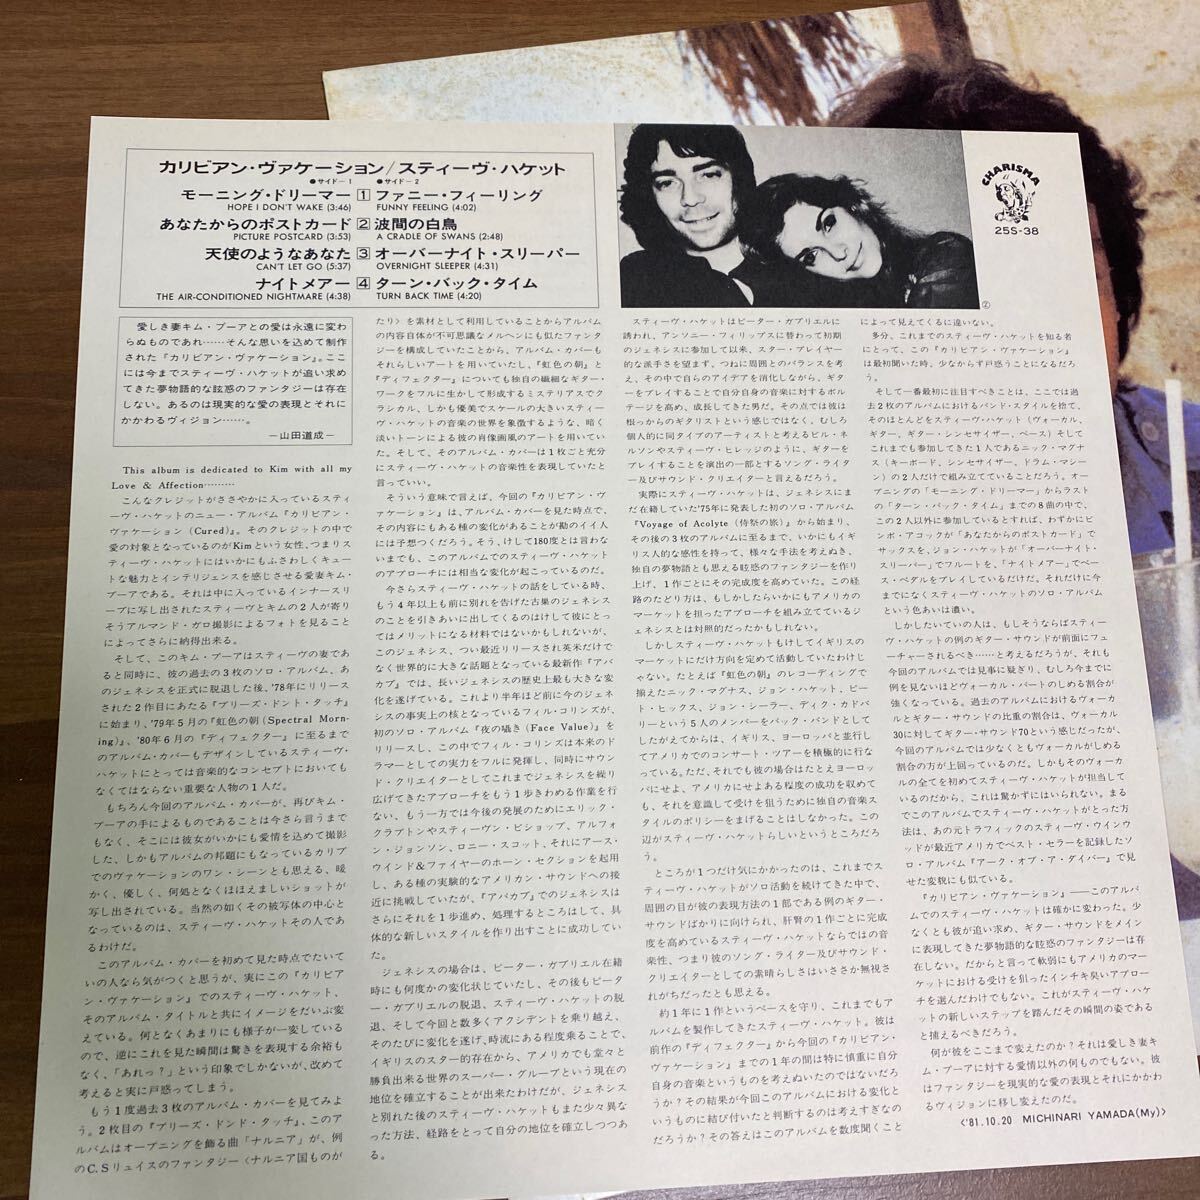 カリビアン・ヴァケーション/スティーヴ・ハケット
●サイド-1 ●サイド-2
モーニング・ドリーマー 1 ファニー・フィーリング
HOPE I DON'T WAKE (3:46) FUNNY FEELING (4:02)
あなたからのポストカード 2 波間の白鳥
PICTURE POSTCARD (3:53) A CRADLE OF SWANS (2:48)
天使のようなあなた 3 オーバーナイト・スリーパー
CAN'T LET GO (5:37) OVERNIGHT SLEEPER (4:31)
ナイトメアー 4 ターン・バック・タイム
THE AIR-CONDITIONED NIGHTMARE (4:38) TURN BACK TIME (4:20)
CHARISMA
25S-38
②
愛しき妻キム・プーアとの愛は永遠に変わ
らぬものであれ……そんな思いを込めて制作
された『カリビアン・ヴァケーション』。ここ
には今までスティーヴ・ハケットが追い求め
てきた夢物語的な眩惑のファンタジーは存在
しない。あるのは現実的な愛の表現とそれに
かかわるヴィジョン……。
—山田道成—
This album is dedicated to Kim with all my
Love & Affection………
こんなクレジットがささやかに入っているスティ
ーヴ・ハケットのニュー・アルバム『カリビアン・
ヴァケーション(Cured)』。そのクレジットの中で
愛の対象となっているのがKimという女性、つまりス
ティーヴ・ハケットにはいかにもふさわしくキュー
トな魅力とインテリジェンスを感じさせる愛妻キム・
プーアである。それは中に入っているインナースリ
ーブに写し出されたスティーヴとキムの2人が寄り
そうアルマンド・ガロ撮影によるフォトを見ること
によってさらに納得出来る。
そして、このキム・プーアはスティーヴの妻であ
ると同時に、彼の過去の3枚のソロ・アルバム、あ
のジェネシスを正式に脱退した後、'78年にリリース
された2作目にあたる『プリーズ・ドント・タッチ』
に始まり、'79年5月の『虹色の朝(Spectral Morn-
ing)』、'80年6月の『ディフェクター』に至るまで
のアルバム・カバーもデザインしているスティーヴ・
ハケットにとっては音楽的なコンセプトにおいても
なくてはならない重要な人物の1人だ。
もちろん今回のアルバム・カバーが、再びキム・
プーアの手によるものであることは今さら言うまで
もなく、そこには彼女がいかにも愛情を込めて撮影
した、しかもアルバムの邦題にもなっているカリブ
でのヴァケーションのワン・シーンとも思える、暖
かく、優しく、何処となくほほえましいショットが
写し出されている。当然の如くその被写体の中心と
なっているのは、スティーヴ・ハケットその人であ
るわけだ。
このアルバム・カバーを初めて見た時点でたいて
いの人なら気がつくと思うが、実にこの『カリビア
ン・ヴァケーション』でのスティーヴ・ハケット、
そのアルバム・タイトルと共にイメージをだいぶ変
えている。何となくあまりにも様子が一変している
ので、逆にこれを見た瞬間は驚きを表現する余裕も
なく、「あれっ？」という印象でしかないが、改めて
考えると実に戸惑ってしまう。
もう1度過去3枚のアルバム・カバーを見てみよ
う。2枚目の『プリーズ・ドンド・タッチ』、このア
ルバムはオープニングを飾る曲「ナルニア」が、例
のC.Sリュイスのファンタジー〈ナルニア国ものが
たり〉を素材として利用していることからアルバム
の内容自体が不可思議なメルヘンにも似たファンタ
ジーを構成していたことから、アルバム・カバーも
それらしいアートを用いていたし、『虹色の朝』と
『ディフェクター』についても独自の繊細なギター・
ワークをフルに生かして形成するミステリアスでク
ラシカル、しかも優美でスケールの大きいスティー
ヴ・ハケットの音楽の世界を象徴するような、暗く
淡いトーンによる彼の肖像画風のアートを用いてい
た。そして、そのアルバム・カバーは1枚ごと充分
にスティーヴ・ハケットの音楽性を表現していたと
言っていい。
そういう意味で言えば、今回の『カリビアン・ヴ
ァケーション』は、アルバム・カバーを見た時点で、
その内容にもある種の変化があることが勘のイイ人
には予想つくだろう。そう、けして180度とは言わな
いまでも、このアルバムでのスティーヴ・ハケット
のアプローチには相当な変化が起こっているのだ。
今さらスティーヴ・ハケットの話をしている時、
もう4年以上も前に別れを告げた古巣のジェネシス
のことを引きあいに出してくるのはけして彼にとっ
てはメリットになる材料ではないかもしれないが、
このジェネシス、つい最近リリースされ英米だけで
なく世界的に大きな話題となっている最新作『アバ
カブ』では、長いジェネシスの歴史上最も大きな変
化を遂げている。これより半年ほど前に今のジェネ
シスの事実上の核となっているフィル・コリンズが、
初のソロ・アルバム『夜の囁き(Face Value)』を
リリースし、この中でフィル・コリンズは本来のド
ラマーとしての実力をフルに発揮し、同時にサウン
ド・クリエイターとしてこれまでジェネシスを繰り
広げてきたアプローチをもう1歩きわめる作業を行
ない、もう一方では今後の発展のためにエリック・
クラプトンやスティーヴン・ビショップ、アルフォ
ン・ジョンソン、ロニー・スコット、それにアース・
ウインド&ファイヤーのホーン・セクションを起用
し、ある種の実験的なアメリカン・サウンドへの接
近に挑戦していたが、『アバカブ』でのジェネシスは
さらにそれを1歩進め、処理するところはして、具
体的な新しいスタイルを作り出すことに成功してい
た。
ジェネシスの場合は、ピーター・ガブリエル在籍
時にも何度かの変化状していたし、その後もピータ
ー・ガブリエルの脱退、スティーヴ・ハケットの脱
退、そして今回と数多くアクシデントを乗り越え、
そのたびに変化を遂げ、時流にある程度乗ることで、
イギリスのスター的存在から、アメリカでも堂々と
勝負出来る世界のスーパー・グループという現在の
地位を確立することが出来たわけだが、ジェネシス
と別れた後のスティーヴ・ハケットもまた少々異な
った方法、経路をとって自分の地位を確立しつつあ
る。
スティーヴ・ハケットはピーター・ガブリエルに
誘われ、アンソニー・フィリップスに替わって初期
のジェネシスに参加して以来、スター・プレイヤー
的な派手さを望まず、つねに周囲とのバランスを考
え、その中で自らのアイデアを消化しながら、ギタ
ーをプレイすることで自分自身の音楽に対するボル
テージを高め、成長してきた男だ。その点では彼は
根っからのギタリストという感じではなく、むしろ
個人的に同タイプのアーティストと考えるビル・ネ
ルソンやスティーヴ・ヒレッジのように、ギターを
プレイすることを演出の一部とするソング・ライタ
ー及びサウンド・クリエイターと言えるだろう。
実際にスティーヴ・ハケットは、ジェネシスにま
だ在籍していた'75年に発表した初のソロ・アルバム
『Voyage of Acolyte(侍祭の旅)』から始まり、
その後の3枚のアルバムに至るまで、いかにもイギ
リス人的な感性を持って、様々な手法を考えぬき、
独自の夢物語とも思える眩惑のファンタジーを作り
上げ、1作ごとにその完成度を高めていた。この経
路のたどり方は、もしかしたらいかにもアメリカの
マーケットを担ったアプローチを組み立てているジ
ェネシスとは対照的だったかもしれない。
しかしスティーヴ・ハケットもけしてイギリスの
マーケットにだけ方向を定めて活動していたわけじ
ゃない。たとえば『虹色の朝』のレコーディングで
揃えたニック・マグナス、ジョン・ハケット、ピー
ト・ヒックス、ジョン・シーラー、ディク・カドバ
リーという5人のメンバーをバック・バンドとして
したがえてからは、イギリス、ヨーロッパと並行し
てアメリカでのコンサート・ツアーを積極的に行な
っている。ただ、それでも彼の場合はたとえヨーロッ
パにせよ、アメリカにせよある程度の成功を収めて
も、それを意識して受けを狙うために独自の音楽ス
タイルのポリシーをまげることはしなかった。この
辺がスティーヴ・ハケットらしいというところだろ
う。
ところが1つだけ気にかかったのは、これまでス
ティーヴ・ハケットがソロ活動を続けてきた中で、
周囲の目が彼の表現方法の1部である例のギター・
サウンドばかりに向けられ、肝腎の1作ごとに完成
度を高めているスティーヴ・ハケットならではの音
楽性、つまり彼のソング・ライター及びサウンド・
クリエイターとしての素晴らしさはいささか無視さ
れがちだったとも思える。
約1年に1作というペースを守り、これまでもア
ルバムを製作してきたスティーヴ・ハケット。彼は
前作の『ディフェクター』から今回の『カリビアン・
ヴァケーション』までの1年の間は特に慎重に自分
自身の音楽というものを考えぬいたのではないだろ
うか？その結果が今回このアルバムにおける変化と
いうものに結び付いたと判断するのは考えすぎなの
だろうか？その答えはこのアルバムを数度聞くこと
によって見えてくるに違いない。
多分、これまでのスティーヴ・ハケットを知る者
にとって、この『カリビアン・ヴァケーション』
は最初聞いた時、少なからず戸惑うことになるだろ
う。
そして一番最初に注目すべきことは、ここでは過
去2枚のアルバムにおけるバンド・スタイルを捨て、
そのほとんどをスティーヴ・ハケット(ヴォーカル、
ギター、ギター・シンセサイザー、ベース)そして
これまでも参加してきた1人であるニック・マグナ
ス(キーボード、シンセサイザー、ドラム・マシー
ン)の2人だけで組み立てていることだろう。オー
プニングの「モーニング・ドリーマー」からラスト
の「ターン・バック・タイム」までの8曲の中で、
この2人以外に参加しているとすれば、わずかにビ
ンボ・アコックが「あなたからのポストカード」で
サックスを、ジョン・ハケットが「オーバーナイト・
スリーパー」でフルートを、「ナイトメアー」でベー
ス・ペダルをプレイしているだけだ。それだけに今
までになくスティーヴ・ハケットのソロ・アルバム
という色あいは濃い。
しかしたいていの人は、もしそうならばスティー
ヴ・ハケットの例のギター・サウンドが前面にフュ
ーチャーされるべき……と考えるだろうが、それも
今回のアルバムでは見事に疑ぎり、むしろ今までに
例を見ないほどヴォーカル・パートのしめる割合が
強くなっている。過去のアルバムにおけるヴォーカ
ルとギター・サウンドの比重の割合は、ヴォーカル
30に対してギター・サウンド70という感じだったが、
今回のアルバムでは少なくともヴォーカルがしめる
割合の方が上回っているのだ。しかもそのヴォーカ
ルの全てを初めてスティーヴ・ハケットが担当して
いるのだから、これは驚かずにはいられない。まる
でこの点でスティーヴ・ハケットがとった方
法は、あの元トラフィックのスティーヴ・ウインウ
ッドが最近アメリカでベスト・セラーを記録したソ
ロ・アルバム『アーク・オブ・ア・ダイバー』で見
せた変貌にも似ている。
『カリビアン・ヴァケーション』——このアルバ
ムでのスティーヴ・ハケットは確かに変わった。少
なくとも彼が追い求め、ギター・サウンドをメイン
に表現してきた夢物語的な眩惑のファンタジーは存
在しない。だからと言って軟弱にもアメリカのマー
ケットにおける受けを狙ったインチキ臭いアプロー
チを選んだわけでもない。これがスティーヴ・ハケ
ットの新しいステップを踏んだその瞬間の姿である
と捕えるべきだろう。
何が彼をここまで変えたのか？それは愛しき妻キ
ム・プーアに対する愛情以外の何ものでもない。彼
はファンタジーを現実的な愛の表現とそれにかかわ
るヴィジョンに移し変えたのだ。
〈'81.10.20 MICHINARI YAMADA(My)〉